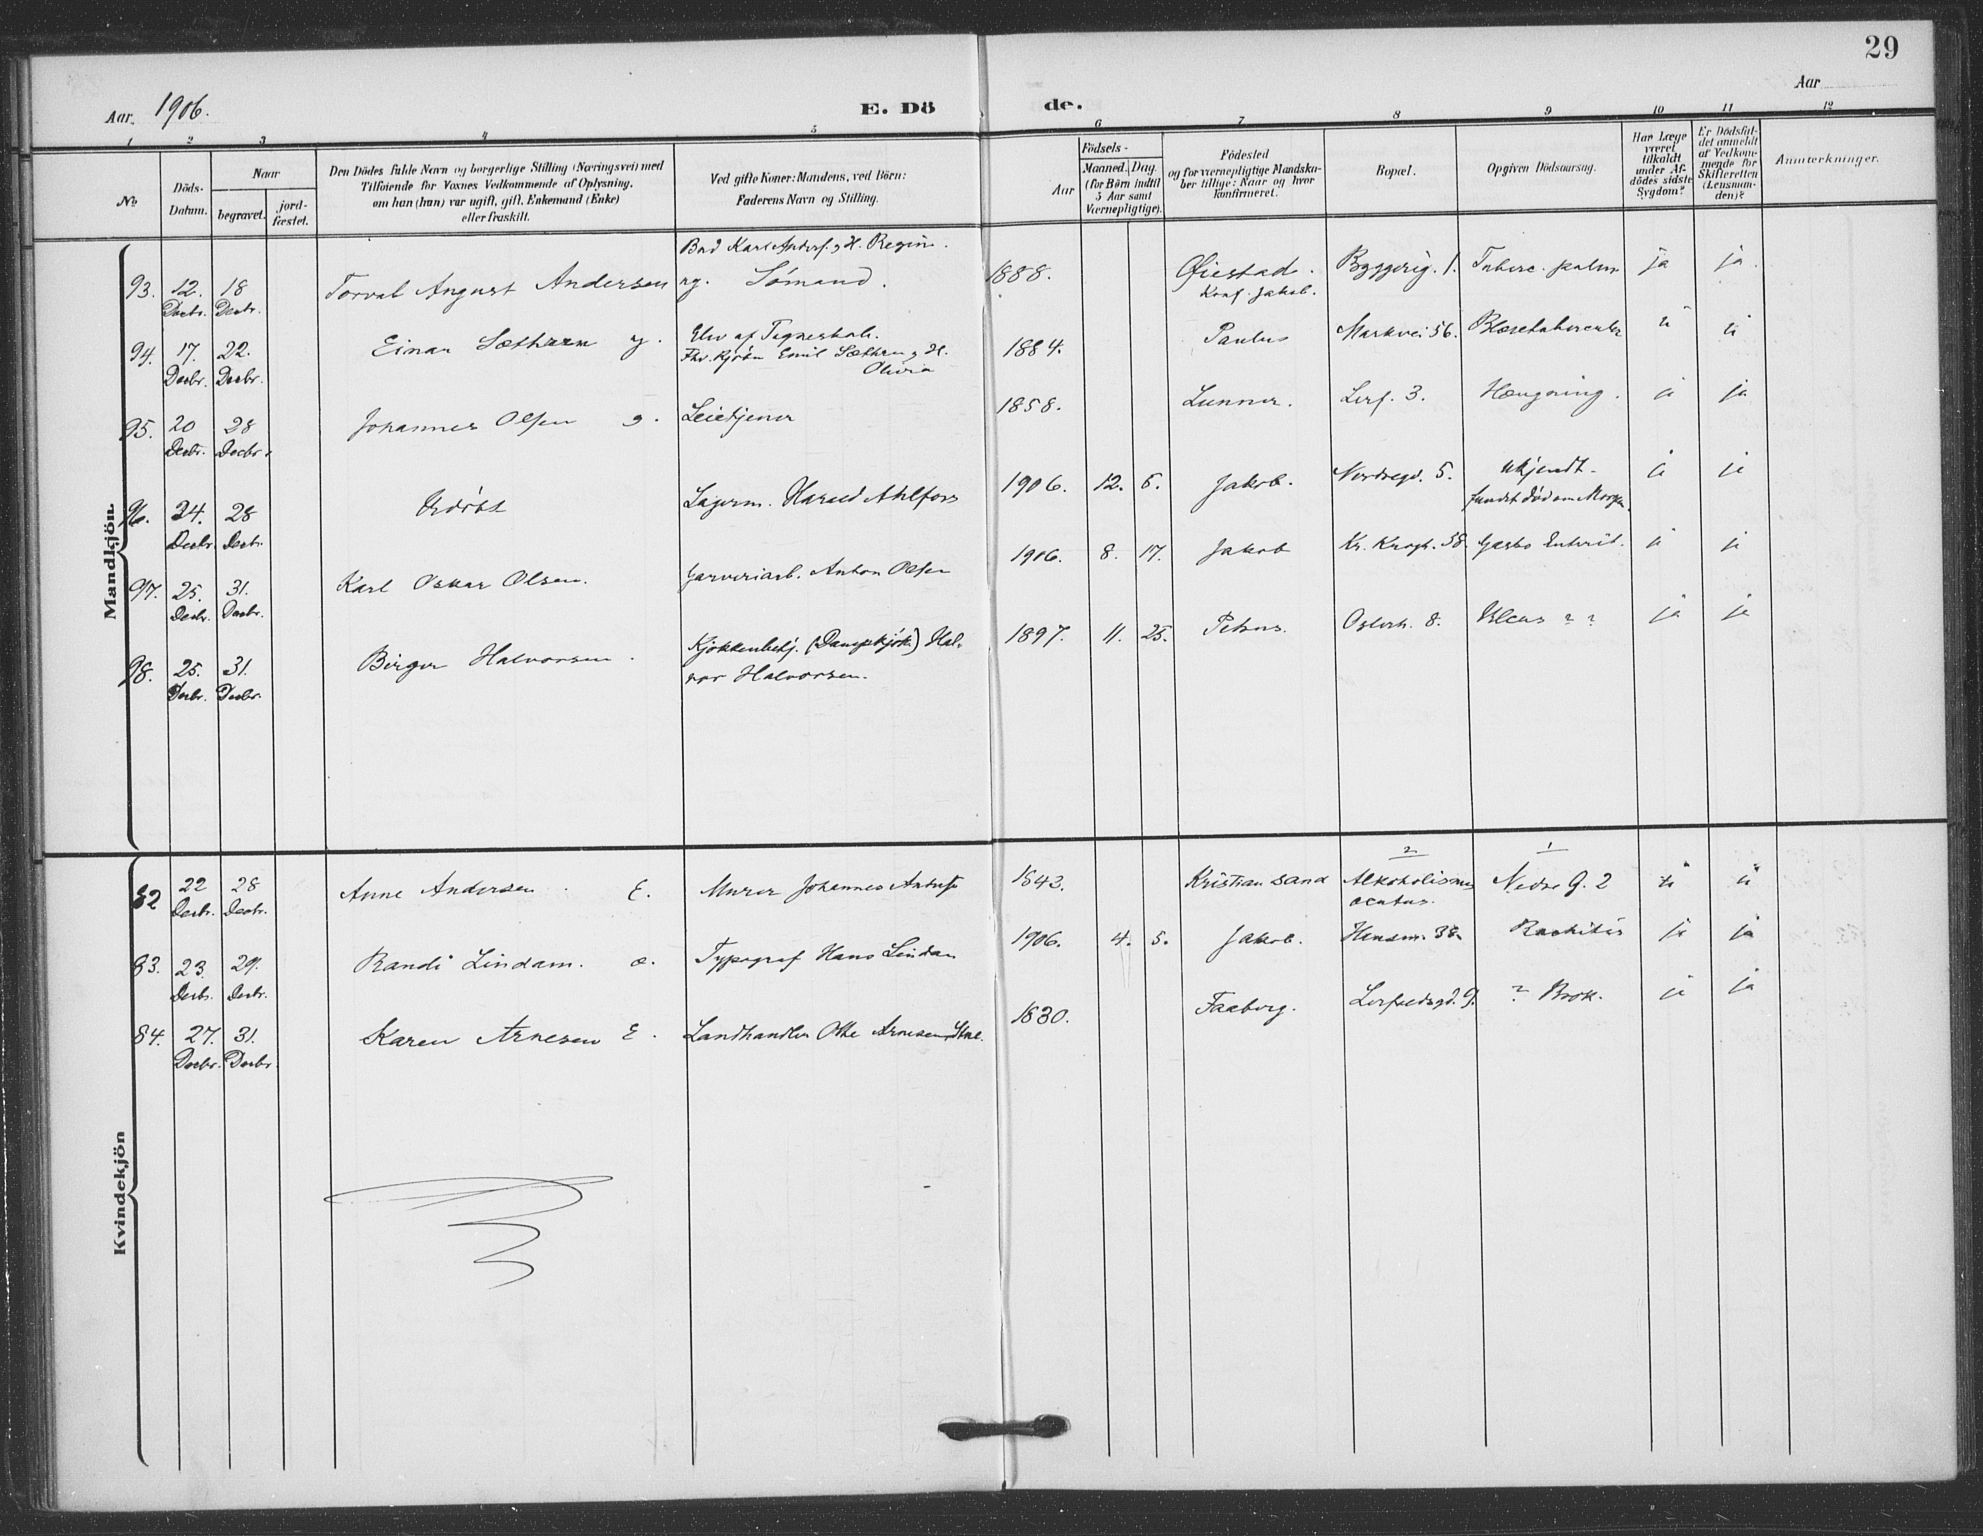 29
Aar 1906.
E. Dö
de.
Aar
1 2 3 4 5 6 7 8 9 10 11 12
No
Döds-
Datum.
Naar
begravet.
jord-
fæstet.
Den Dödes fulde Navn og borgerlige Stilling (Næringsvei) med
Tilföiende for Voxnes Vedkommende af Oplysning,
om han (hun) var ugift, gift, Enkemand (Enke)
eller fraskilt.
Ved gifte Koner: Mandens, ved Börn:
Faderens Navn og Stilling.
Födsels-
Aar
Maaned. Dag.
(for Börn indtil
5 Aar samt
Værnepligtige).
Födested
og for værnepligtige Mandska-
ber tillige: Naar og hvor
konfirmeret.
Bopæl.
Opgiven Dödsaarsag.
Har Læge
været
tilkaldt
under Af-
dödes sidste
Sygdom?
Er Dödsfal-
det anmeldt
af Vedkom-
mende for
Skifteretten
(Lensman-
den)?
Anmærkninger.
Mandkjön.
93. 12. Decbr. 18 Decbr. Torval August Andersen ug. Sömand. 1888. Øiestad. Konf. Jakob. Byggerig. 1. Tuberc. pulm ja ja.
94. 17. Decbr. 22. Decbr. Einar Sæthren Elev af Tegneskole. Emil Sæthren og H. Olivia 1884. Paulus Markvei 56. Blæretuberculer
95. 20 Decbr. 28 Decbr. Johannes Olsen g. Leietjener 1858. Lunner. Lerf. 3. Hængning. ja
96. 24. Decbr. 28 Decbr. Udöbt Lagerm. Harald Ahlfors 1906. 12. 6. Jakob. Nordregd. 5. Ukjendt. fundet död om Morgen.
97. 25. Decbr. 31. Decbr. Karl Oskar Olsen. Garveriarb. Anton Olsen 1906. 8. 17. Jakob Kr. Krogh. 38. Gastro Enterit.
98. 25. Decbr. 31. Decbr. Birger Halvorsen. Kjökkenbetj. (Dampkjök.) Hal-
vor Halvorsen. 1897. 11. 25. Petrus. Osterh. 8. Ulcus ? ? ja ja
Kvindekjön
82 22 Decbr. 28 Decbr. Anne Andersen. E. Murer Johannes 1843. Kristiansand 2 Alkoholismus acutus. 1 Nedre G. 2
83. 23. Decbr. 29. Decbr. Randi Lindam. Typograf Hans Lindam 1906. 4. 5. Jakob. Hensm. 38. Rachitis ja ja
84. 27. Decbr. 31. Decbr. Karen Arnesen E. Landhandler Otte Arnesen 1830. Faaborg. Lerfaldsgd. 9. ? Brok. ja ja